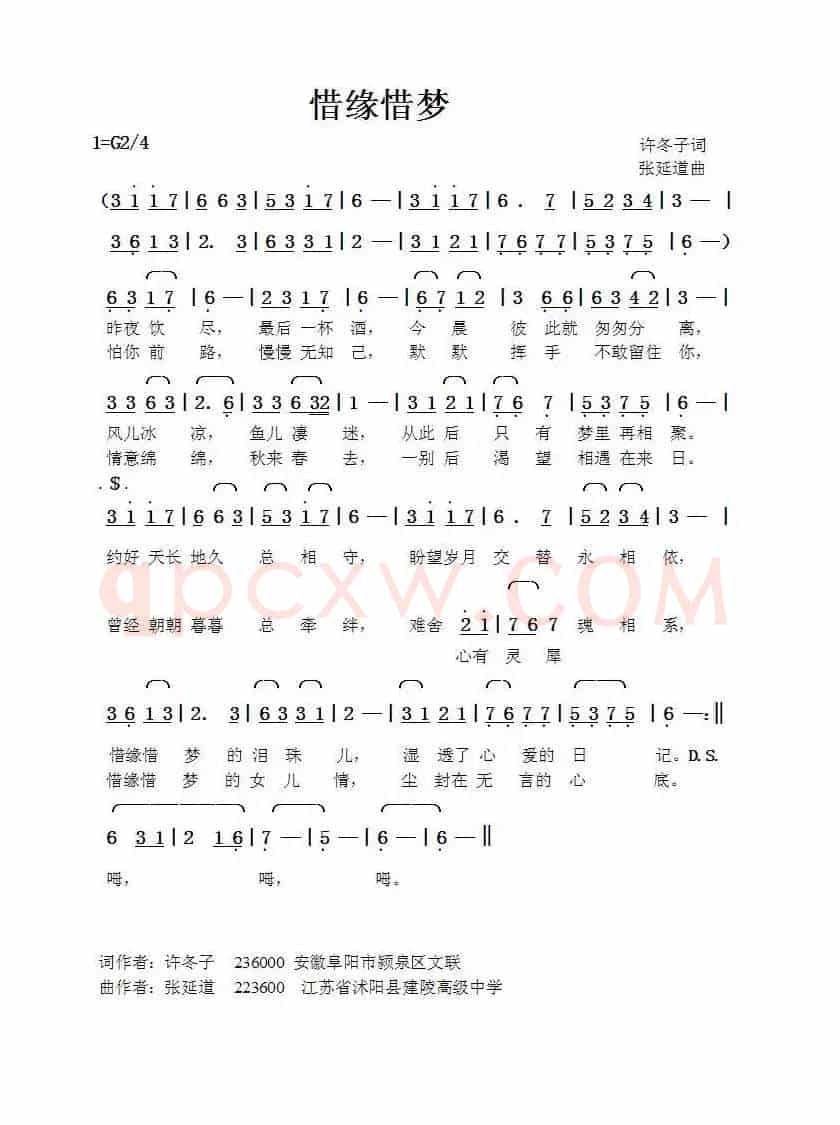 惜缘惜梦
1=G2/4
许冬子词
张延道曲
(3 1 1 7 | 6 6 3 | 5 3 1 7 | 6 — | 3 1 1 7 | 6 . 7 | 5 2 3 4 | 3 — |
3 6 1 3 | 2. 3 | 6 3 3 1 | 2 — | 3 1 2 1 | 7 6 7 7 | 5 3 7 5 | 6 — )
6 3 1 7 | 6 — | 2 3 1 7 | 6 — | 6 7 1 2 | 3 6 6 | 6 3 4 2 | 3 — |
昨夜 饮 尽， 最后 一杯 酒， 今 晨 彼 此就 匆匆分 离，
怕你 前 路， 慢慢 无知 己， 默 默 挥 手 不敢留住 你，
3 3 6 3 | 2. 6 | 3 3 6 32 | 1 — | 3 1 2 1 | 7 6 7 | 5 3 7 5 | 6 — |
风儿冰 凉， 鱼儿 凄 迷， 从此 后 只 有 梦里 再相 聚。
情意绵 绵， 秋来 春 去， 一别 后 渴 望 相遇 在来 日。
.$.
3 1 1 7 | 6 6 3 | 5 3 1 7 | 6 — | 3 1 1 7 | 6 . 7 | 5 2 3 4 | 3 — |
约好 天长 地久 总 相 守， 盼望岁月 交 替 永 相 依，
曾经 朝朝 暮暮 总 牵 绊， 难舍 2 1 | 7 6 7 魂 相 系，
心有 灵 犀
3 6 1 3 | 2. 3 | 6 3 3 1 | 2 — | 3 1 2 1 | 7 6 7 7 | 5 3 7 5 | 6 — :‖
惜缘惜 梦 的 泪 珠 儿， 湿 透了 心 爱的 日 记。D.S.
惜缘惜 梦 的 女 儿 情， 尘 封在 无 言的 心 底。
6 3 1 | 2 1 6 | 7 — | 5 — | 6 — | 6 — ‖
呣， 呣， 呣。
词作者：许冬子 236000 安徽阜阳市颍泉区文联
曲作者：张延道 223600 江苏省沭阳县建陵高级中学
qpcxw.COM